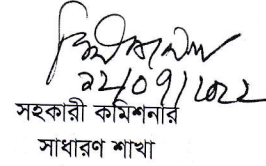 ২৮/০৭/২০২২
সহকারী কমিশনার
সাধারণ শাখা